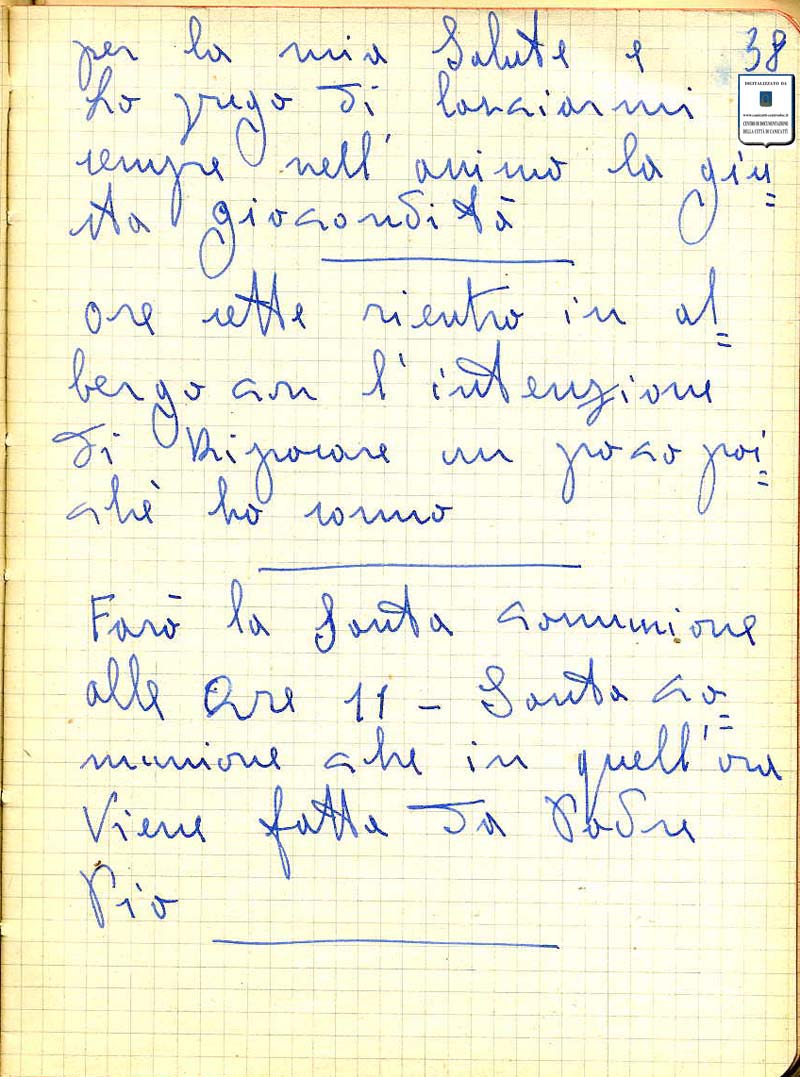 38
per la mia Salute e
Lo prego di lasciarmi
sempre nell'animo la giu=
sta giocondità
ore sette rientro in al=
bergo con l'intenzione
di Riposare un poco poi=
chè ho sonno
Farò la Santa comunione
alle Ore 11 - Santa co=
munione che in quell'ora
Viene fatta da Padre
Pio
DIGITALIZZATO DA
CENTRO DI DOCUMENTAZIONE
DELLA CITTÀ DI CANICATTÌ